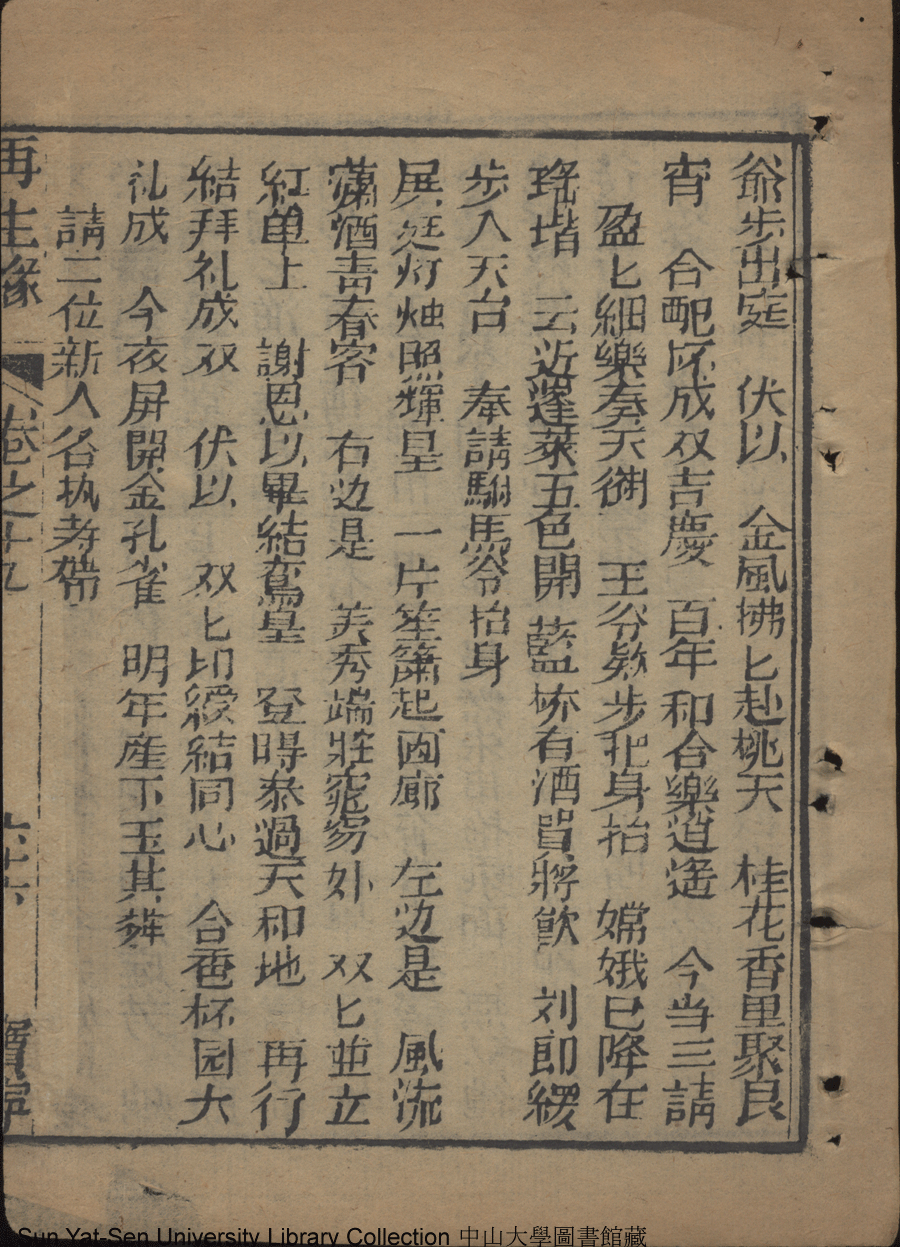 爺步出庭 伏以 金風拂匕赴桃天 桂花香里聚良
宵 合配
成双吉慶 百年和合樂逍遥 今当三請
盈匕細樂奏天御 王爷欵步把身抬 嫦娥已降在
瑤堦 云近蓬萊五色開 藍桥有酒買將飲 刘郎緩
步入天台 奉請駙馬爷抬身
屏廷灯烛照輝皇 一片笙簫起囬廊 左边是 風流
瀟洒青春客 右边是 美秀端莊窈窕外 双匕並立
紅单上 謝恩以畢結鸞皇 登時恭過天和地 再行
結拜礼成双 伏以 双匕印綬結同心 合卺杯园大
礼成 今夜屏開金孔雀 明年産下玉其麟
請二位新人各执孝帶
再生緣 卷之十九 六十六 寶寧
Sun Yat-Sen University Library Collection 中山大學圖書館藏